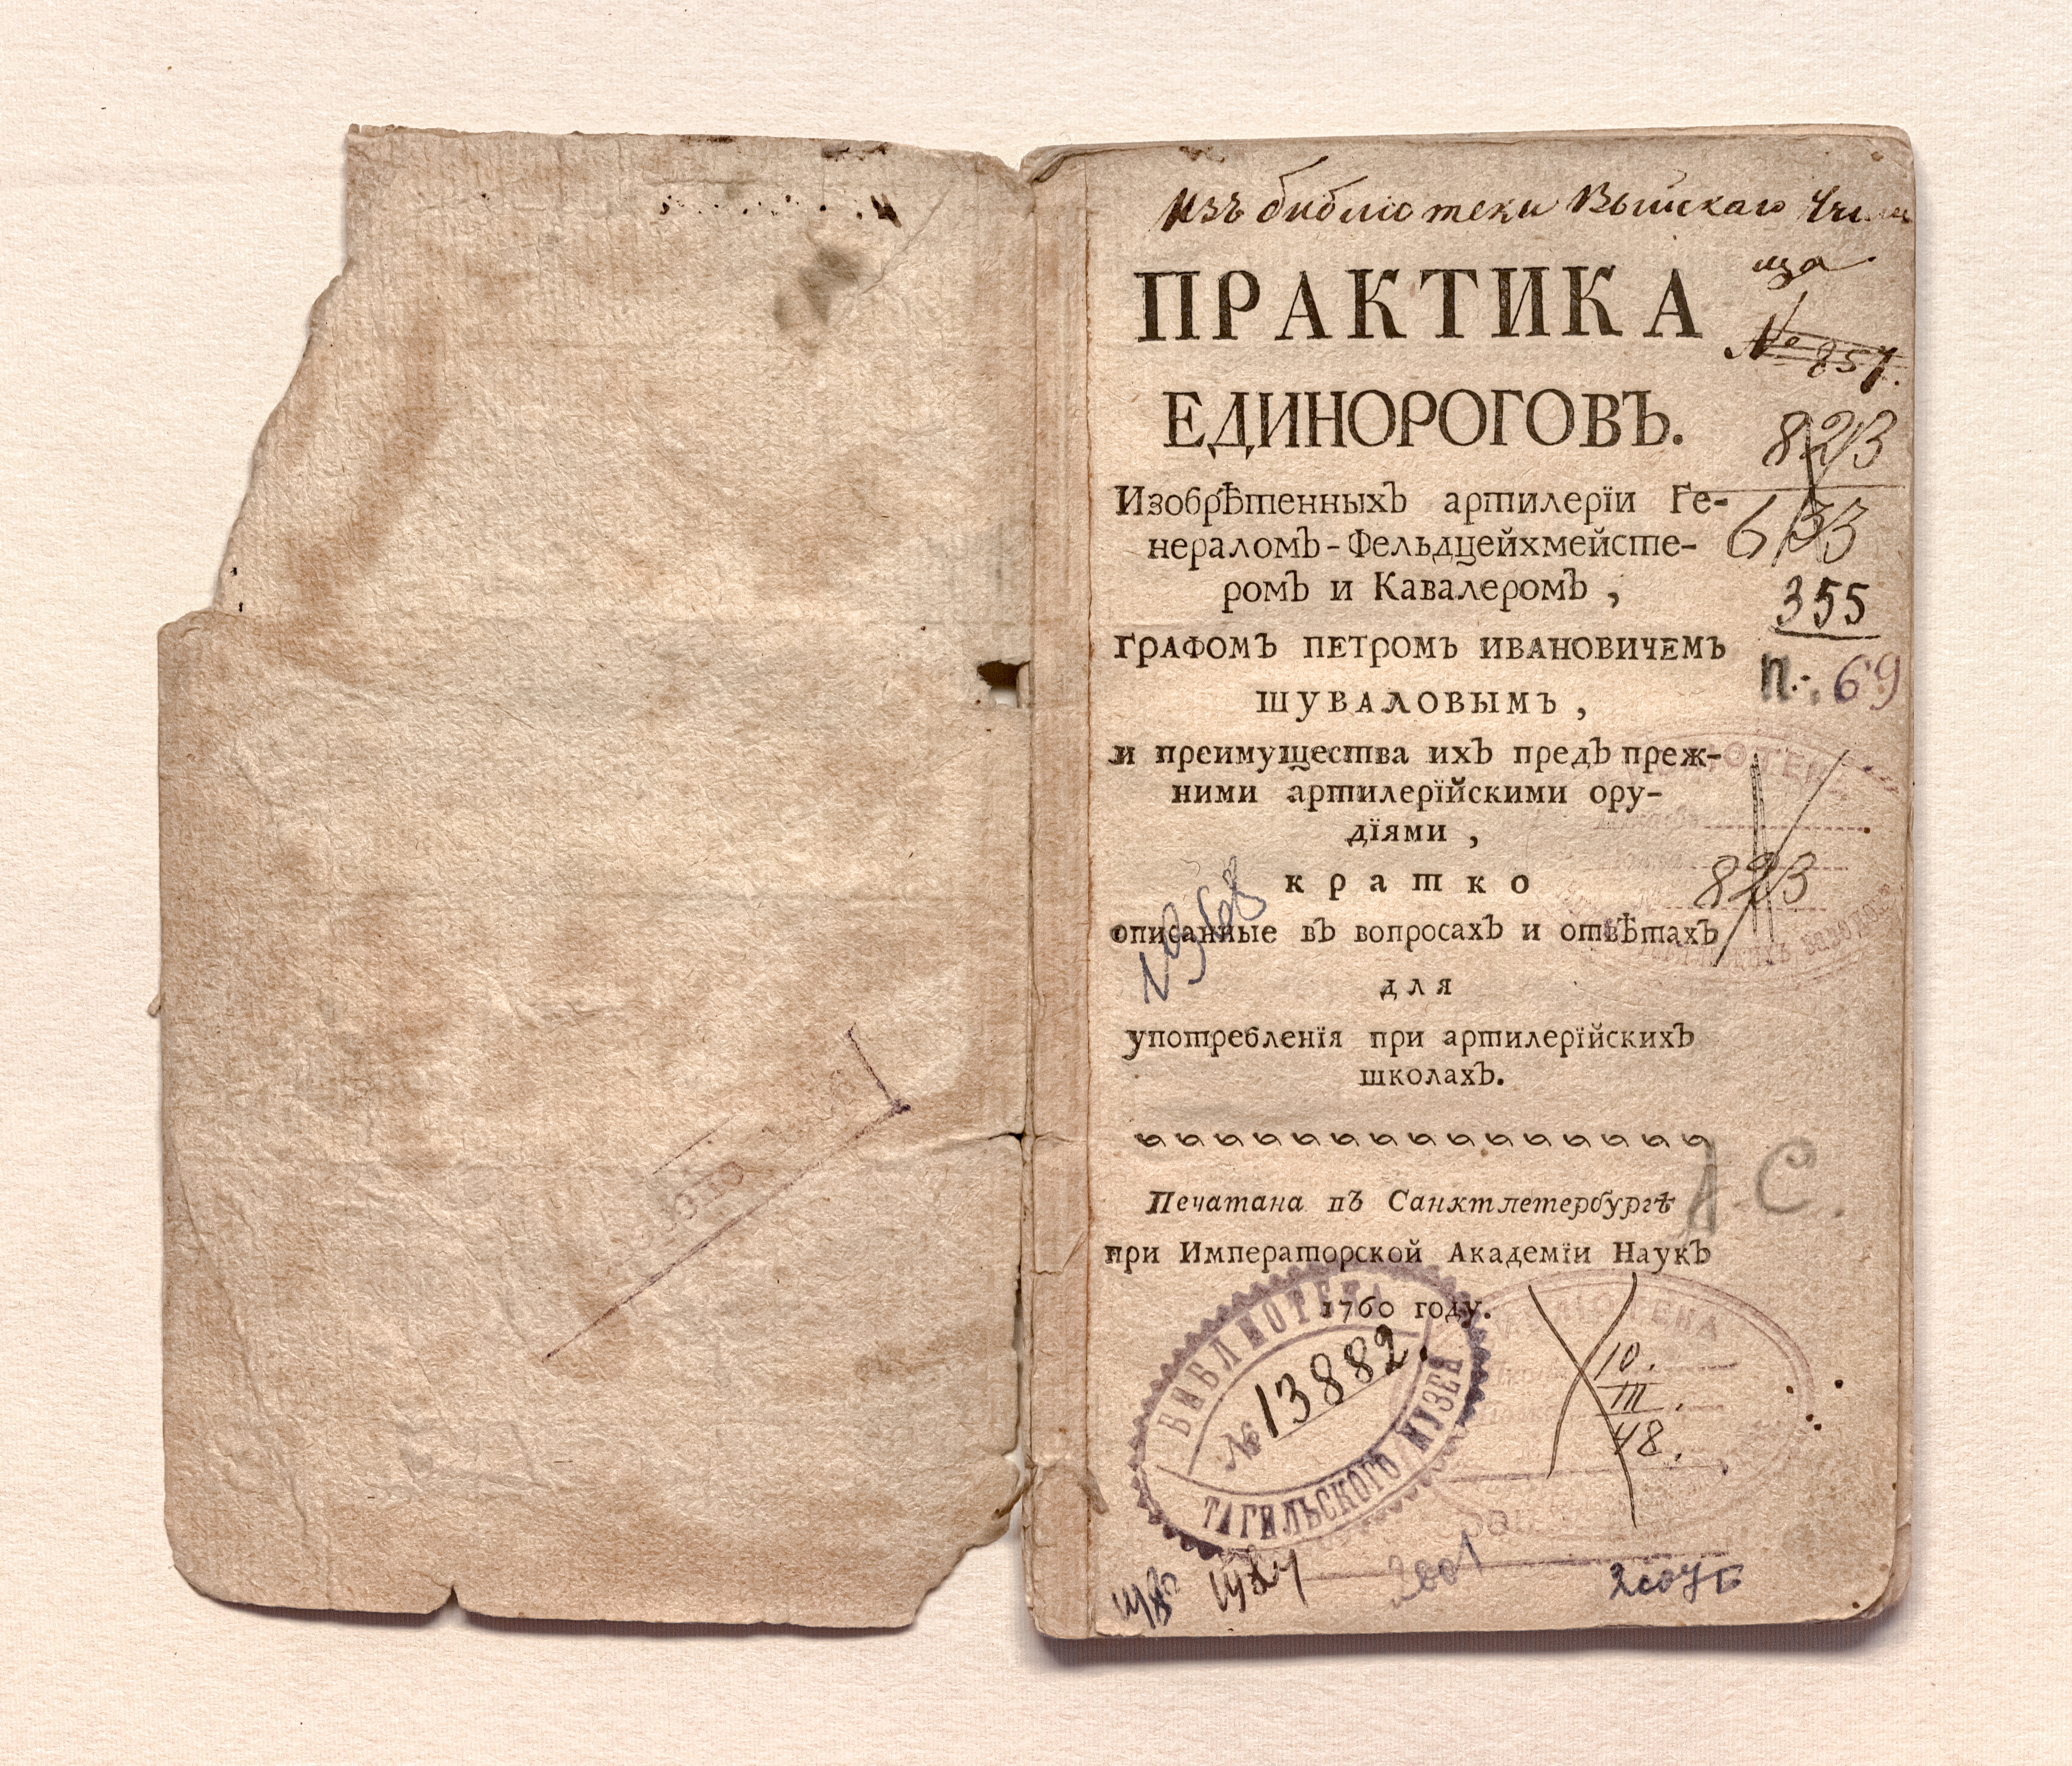 Изъ библіотеки Выйскаго Учили
ща
№ 851.
ПРАКТИКА
ЕДИНОРОГОВЪ.
823
633
Изобрѣтенныхъ артилерїи Ге-
нераломъ-Фельдцейхмейсте-
ромъ и Кавалеромъ ,
355
ГРАФОМЪ ПЕТРОМЪ ИВАНОВИЧЕМЪ
П-. 69
ШУВАЛОВЫМЪ ,
и преимущества ихъ предъ преж-
ними артилерїйскими ору-
дїями ,
кратко
823
описанные въ вопросахъ и отвѣтахъ
для
употребленїя при артилерїйскихъ
школахъ.
А.С.
Печатана въ Санктпетербургѣ
при Императорской Академїи Наукъ
1760 году.
БИБЛИОТЕКА
№ 13882.
ТАГИЛЬСКОГО МУЗЕЯ
БИБЛІОТЕКА
10.
III.
48.
2001